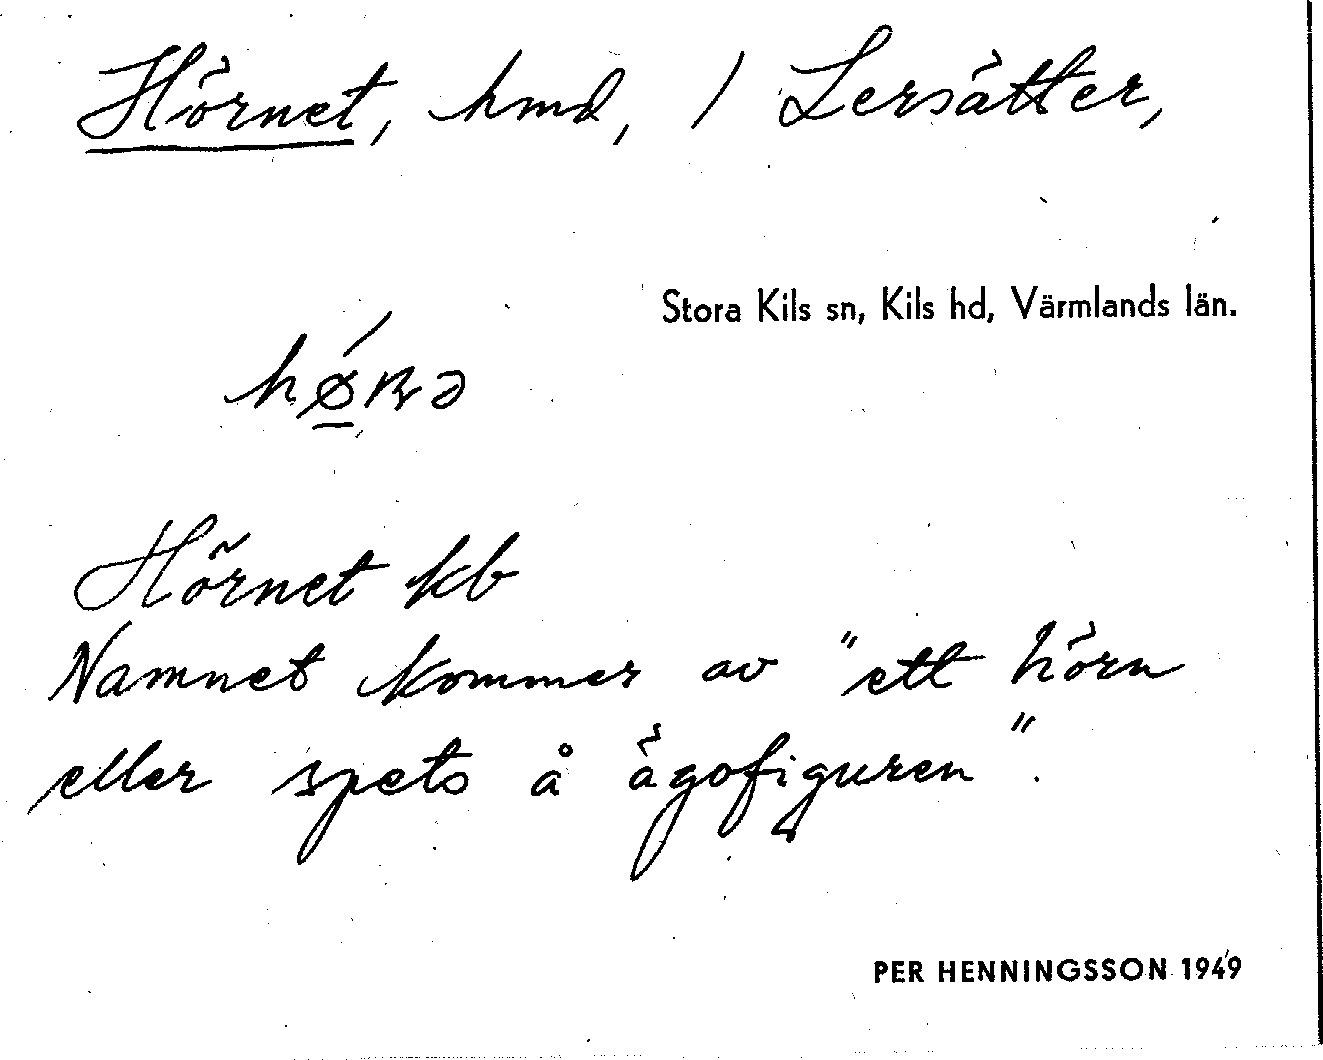 Hörnet, hmd, / Lersätter,
Stora Kils sn, Kils hd, Värmlands län.
Hörnet kb
Namnet kommer av "ett hörn
eller spets å ägofiguren".
PER HENNINGSSON 1949